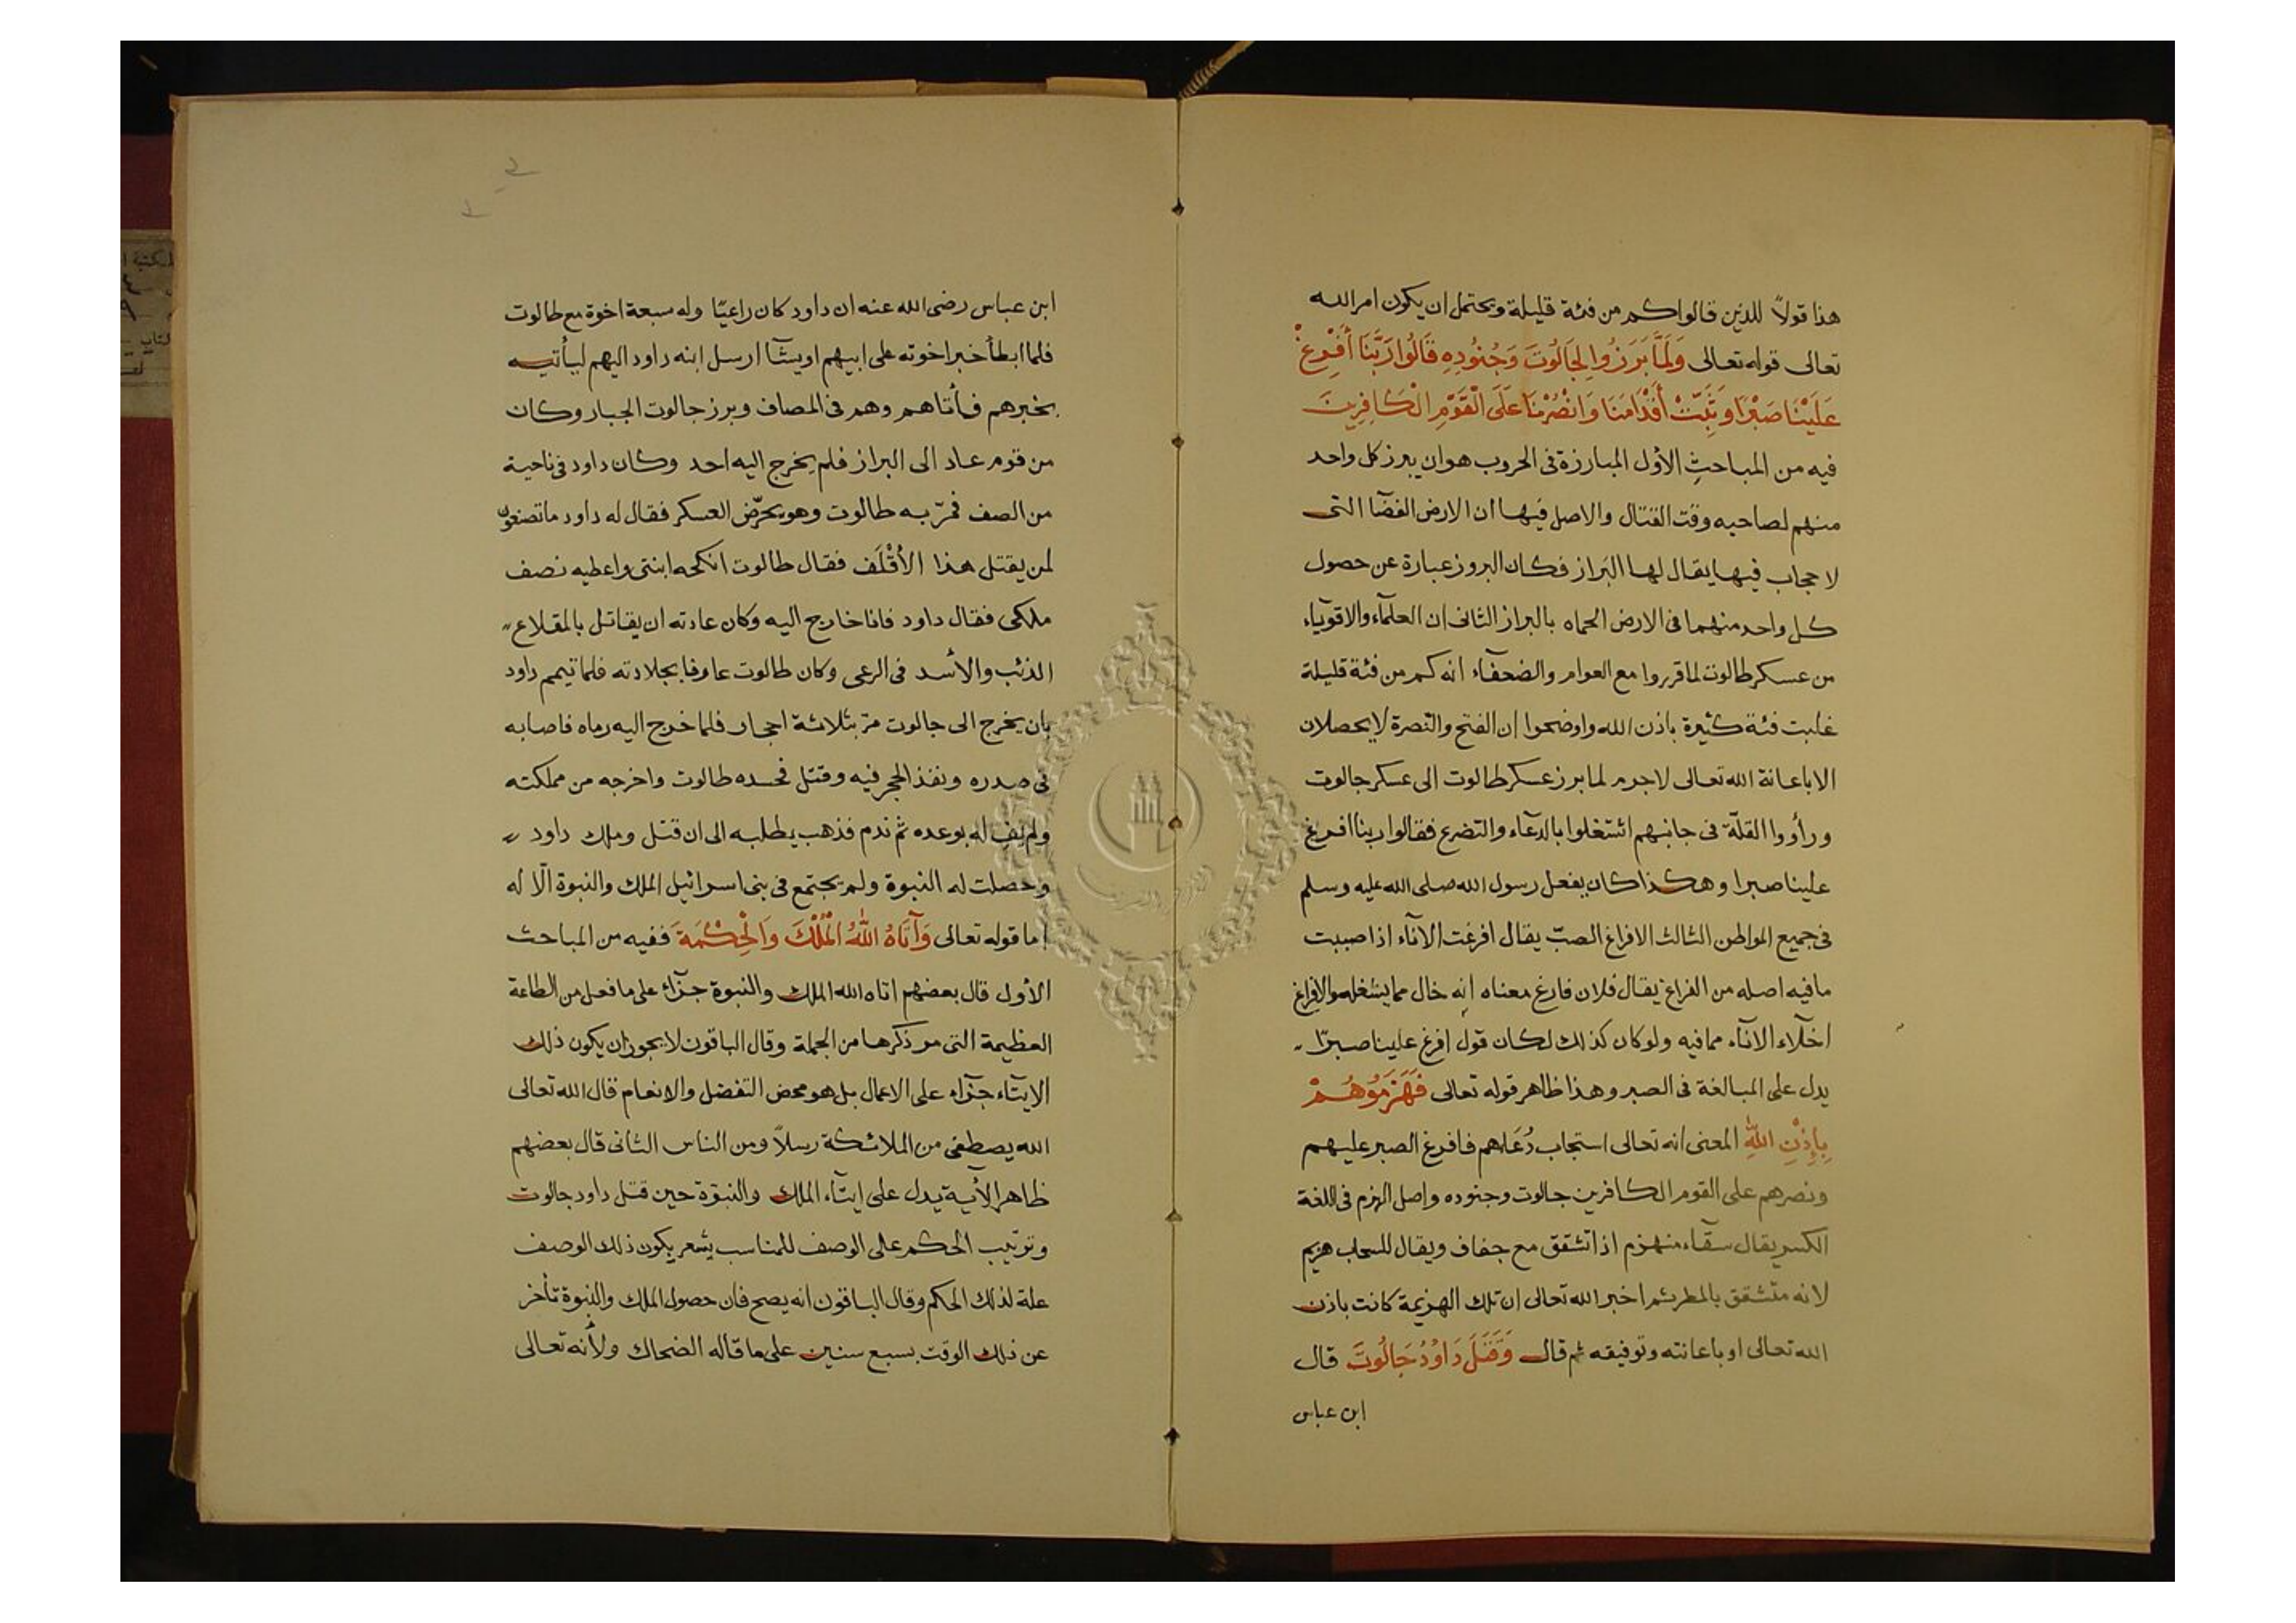 هذا قولاً للذين قالوا كم من فئة قليلة ويحتمل ان يكون امر الله
تعالى قوله تعالى وَلَمَّا بَرَزُوا لِجَالُوتَ وَجُنُودِهِ قَالُوا رَبَّنَا أَفْرِغْ
عَلَيْنَا صَبْرًا وَثَبِّتْ أَقْدَامَنَا وَانْصُرْنَا عَلَى الْقَوْمِ الْكَافِرِينَ
فيه من المباحثِ الأول المبارزة فى الحروب هو ان يبرز كل واحد
منهم لصاحبه وقت القتال والاصل فيها ان الارض الفضآ التى
لا حجاب فيها يقال لها البَراز فكان البروز عبارة عن حصول
كل واحد منهما فى الارض الحماه بالبراز الثانى ان العلمآء والاقويآء
من عسكر طالوت لما قرروا مع العوام والضعفآء انه كم من فئة قليلة
غلبت فئة كثيرة باذن الله واوضحوا ان الفتح والنصرة لا يحصلان
الا باعانة الله تعالى لاجرم لما برز عسكر طالوت الى عسكر جالوت
ورأووا القلّة فى جانبهم اشتغلوا بالدعآء والتضرع فقالوا ربنا افرغ
علينا صبرا وهكذا كان يفعل رسول الله صلى الله عليه وسلم
فى جميع المواطن الثالث الافراغ الصبّ يقال افرغت الانآء اذا صببت
ما فيه اصله من الفراغ يقال فلان فارغ معناه انه خال مما يشغله والافراغ
اخلآء الانآء مما فيه ولو كان كذلك لكان قول افرغ علينا صبرًا
يدل على المبالغة فى الصبر وهذا ظاهر قوله تعالى فَهَزَمُوهُمْ
بِإِذْنِ اللهِ المعنى انه تعالى استجاب دُعَاهم فافرغ الصبر عليهم
ونصرهم على القوم الكافرين جالوت وجنوده واصل الهزم فى اللغة
الكسر يقال سقآء منهزم اذا تشقق مع جفاف ويقال للسحاب هزيم
لانه متشقق بالمطر ثم اخبر الله تعالى ان تلك الهزيمة كانت باذن
الله تعالى او باعانته وتوفيقه ثم قال وَقَتَلَ دَاوُدُ جَالُوتَ قال
ابن عباس
ابن عباس رضى الله عنه ان داود كان راعيًا وله سبعة اخوة مع طالوت
فلما ابطأ خبر اخوته على ابيهم اويشآ ارسل ابنه داود اليهم ليأتيه
بخبرهم فأتاهم وهم فى المصاف وبرز جالوت الجبار وكان
من قوم عاد الى البراز فلم يخرج اليه احد وكان داود فى ناحية
من الصف فمرّ به طالوت وهو يحرّض العسكر فقال له داود ما تصنعون
لمن يقتل هذا الأقْلَف فقال طالوت انكحه ابنتى واعطيه نصف
ملكى فقال داود فانا خارج اليه وكان عادته ان يقاتل بالمقلاع
الذئب والأسد فى الرعى وكان طالوت عارفا بجلادته فلما تيمم داود
بان يخرج الى جالوت مرّ بثلاثة احجار فلما خرج اليه رماه فاصابه
فى صدره ونفذ الحجر فيه وقتل فحسده طالوت واخرجه من مملكته
ولم يفِ له بوعده ثم ندم فذهب يطلبه الى ان قتل وملك داود
وحصلت له النبوة ولم يجتمع فى بنى اسرائيل الملك والنبوة الّا له
اما قوله تعالى وَآتَاهُ اللهُ الْمُلْكَ وَالْحِكْمَةَ ففيه من المباحث
الأول قال بعضهم اتاه الله الملك والنبوة جزآء على ما فعل من الطاعة
العظيمة التى مر ذكرها من الجملة وقال الباقون لا يجوز ان يكون ذلك
الايتآء جزآء على الاعمال بل هو محض التفضل والانعام قال الله تعالى
الله يصطفى من الملائكة رسلاً ومن الناس الثانى قال بعضهم
ظاهر الأية يدل على ايتآء الملك والنبوّة حين قتل داود جالوت
وترتيب الحكم على الوصف للمناسب يشعر بكون ذلك الوصف
علة لذلك الحكم وقال الباقون انه يصح فان حصول الملك والنبوة تأخر
عن ذلك الوقت بسبع سنين على ما قاله الضحاك ولأنه تعالى